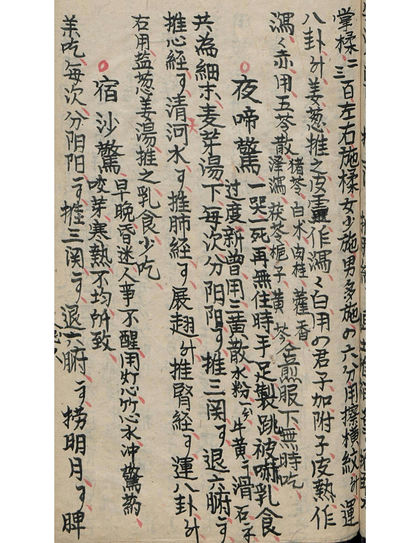 掌揉二三百左右施揉女少施男多施の六分用擦橫紋廾運
八卦廾姜葱推之皮虛作瀉〻白用の君子加附子皮熱作
瀉〻赤用五苓散澤瀉 茯苓 梔子 黃芩 煎服下無時吃
猪苓 白朮 肉桂 藿香
夜啼驚 一哭一死再無住時手足掣跳被嚇乳食
过度新曾用三黃散水粉 牛黃 滑石
共為細末麦芽湯下每次分阴阳 推三関 退六腑
推心経 清河水 推肺経 展翅廾推腎経 運八卦廾
右用盐葱姜湯推之乳食少吃
宿沙驚 早晚昏迷人事不醒用灯心竹心水冲驚药
咬芽寒熱不均所致
羊吃每次分阴阳 推三関 退六腑 撈明月 脾